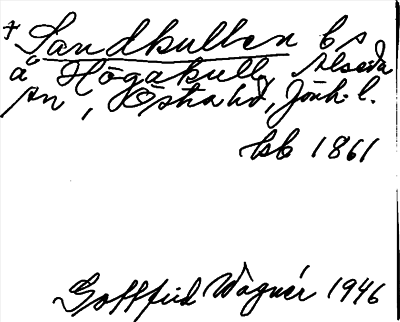 + Sandkullen bs
å Högakull, Alseda
sn, Östra hd, Jönk. l.
hb 1861
Gottfrid Wagnér 1946